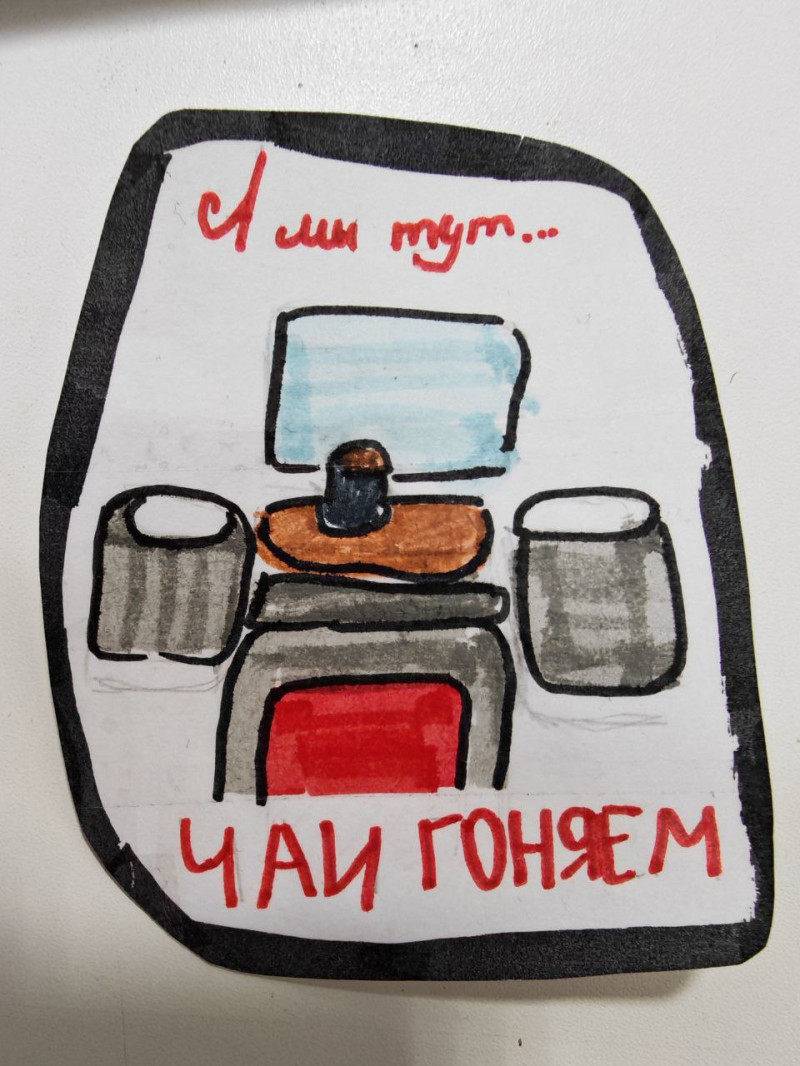 А мы тут...
ЧАИ ГОНЯЕМ